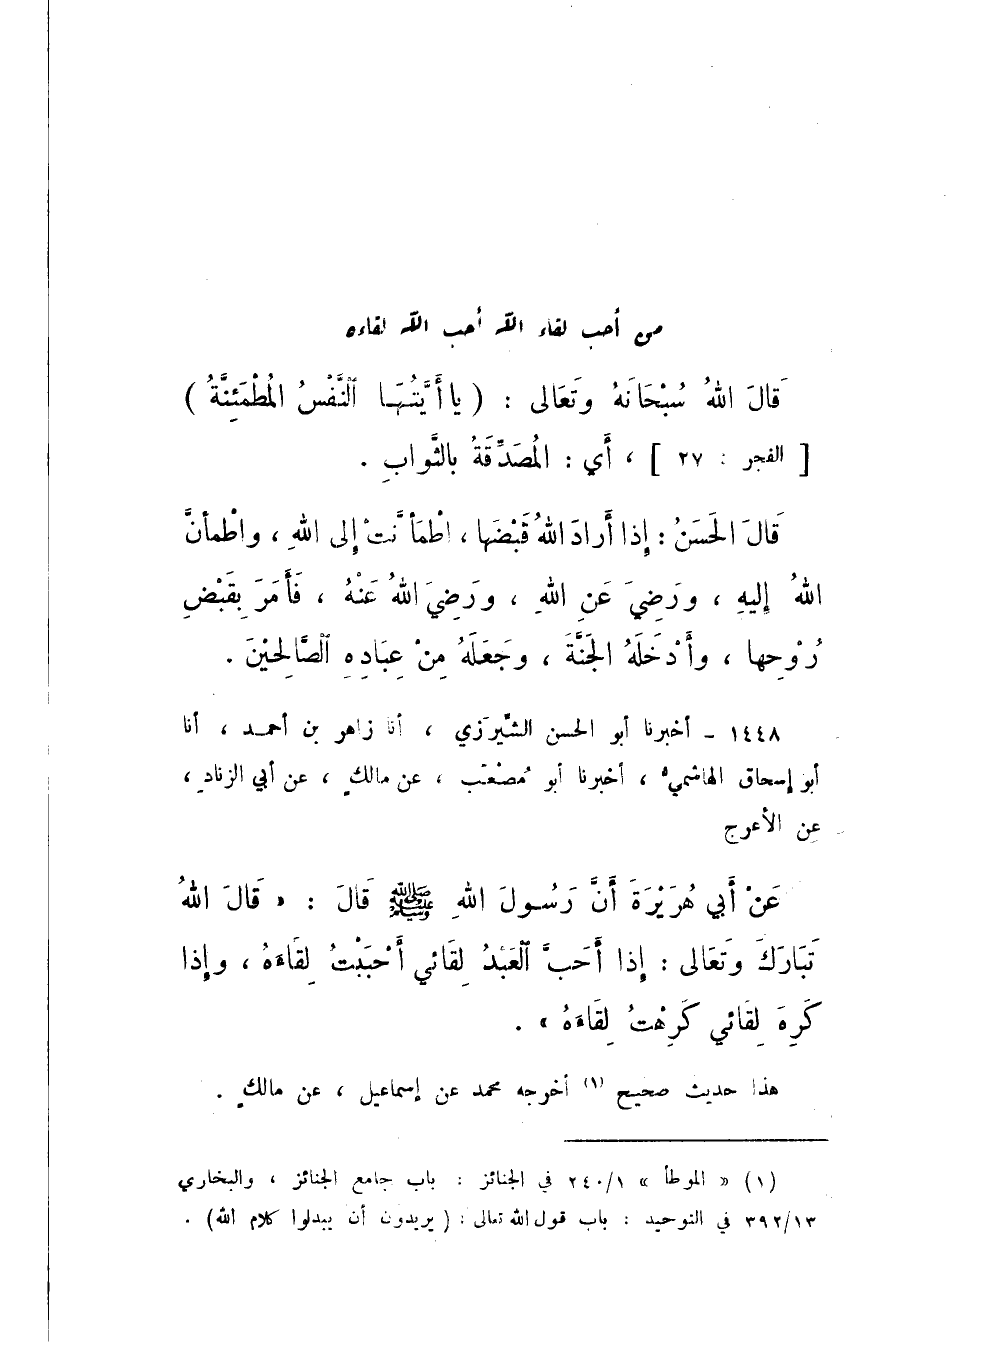 من أحب لقاء الله أحب الله لقاءه
قَالَ اللهُ سُبْحَانَهُ وَتَعَالى : ( يا أَيَّتُهَا ٱلنَّفْسُ المُطْمَئِنَّةُ )
[ الفجر : ٢٧ ] ، أَي : المُصَدِّقَةُ بالثَّوابِ .
قَالَ الحَسَنُ : إِذا أَرادَ اللهُ قَبْضَها ، اطْمَأَنَّتْ إِلى اللهِ ، واطْمأنَّ
اللهُ إِليهِ ، ورَضِيَ عَنِ اللهِ ، ورَضِيَ اللهُ عَنْهُ ، فَأَمَرَ بِقَبْضِ
رُوْحِها ، وأَدْخَلَهُ الجَنَّةَ ، وجَعَلَهُ مِنْ عِبَادِهِ ٱلصَّالِحِيْنَ .
١٤٤٨ - أخبرنا أبو الحسن الشِّيرَزي ، أنا زاهر بن أحمد ، أنا
أبو إسحاق الهاشميُّ ، أخبرنا أبو مُصْعَب ، عن مالكٍ ، عن أبي الزنادِ ،
عن الأعرج
عَنْ أَبي هُرَيْرَةَ أَنَّ رَسُولَ اللهِ ﷺ قَالَ : « قَالَ اللهُ
تَبَارَكَ وَتَعَالى : إِذا أَحَبَّ ٱلعَبْدُ لِقَائي أَحْبَبْتُ لِقَاءَهُ ، وإِذا
كَرِهَ لِقَائي كَرِهْتُ لِقَاءَهُ » .
هذا حديث صحيح (١) أخرجه محمد عن إسماعيل ، عن مالكٍ .
(١) « الموطأ » ٢٤٠/١ في الجنائز : باب جامع الجنائز ، والبخاري
٣٩٢/١٣ في التوحيد : باب قول الله تعالى : ( يريدون أن يبدلوا كلام الله ) .